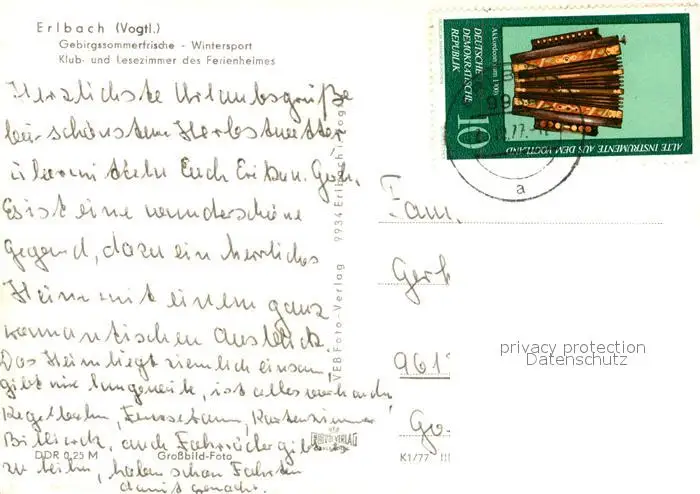 Erlbach (Vogtl.)
Gebirgssommerfrische - Wintersport
Klub- und Lesezimmer des Ferienheimes
Herzlichste Urlaubsgrüße
bei schönstem Herbstwetter
übermitteln Euch Erika u. Gerh.
Es ist eine wunderschöne
Gegend, dazu ein herrliches
Heim mit einem ganz
romantischen Ausblick
Das Heim liegt ziemlich einsam
gibt nie Langeweile, ist alles vorhanden
Kegelbahn, Fernsehraum, Kartenzimmer
Billiard, auch Fahrräder gibt es
zu leihn, haben schon Fahrten
damit gemacht.
DDR 0,25 M Großbild-Foto
VEB Foto-Verlag 9934 Erlbach i. Vogtl.
VERLAG
K1/77 III
DEUTSCHE
DEMOKRATISCHE
REPUBLIK
10
Akkordeon (um 1900)
ALTE INSTRUMENTE AUS DEM VOGTLAND
99
77
a
Fam.
Gerh
961
Go
privacy protection
Datenschutz